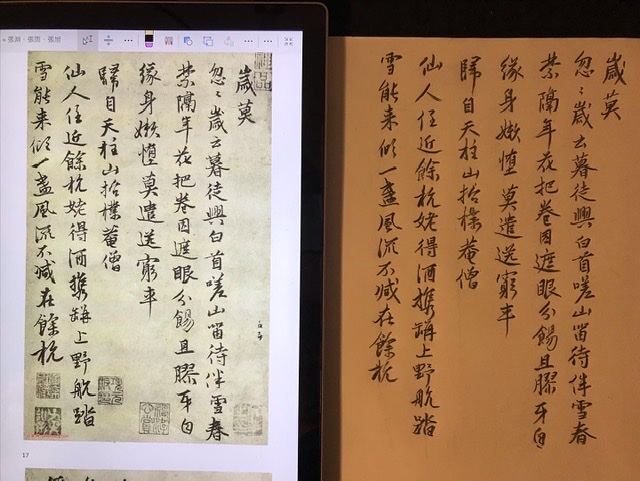 張雨 · 張旭
歲莫
忽〻歲云暮徒興白首嗟山留待伴雪春
禁隔年花把卷因遮眼分餳且膠牙自
緣身嬾墮莫遣送窮車
歸自天柱山拾櫟菴僧
仙人住近餘杭姥得酒攜上野航踏
雪能来一盞風流不減在餘杭
17
歲莫
忽〻歲云暮徒興白首嗟山留待伴雪春
禁隔年花把卷因遮眼分餳且膠牙自
緣身嬾墮莫遣送窮車
歸自天柱山拾櫟菴僧
仙人住近餘杭姥得酒攜上野航踏
雪能来一盞風流不減在餘杭